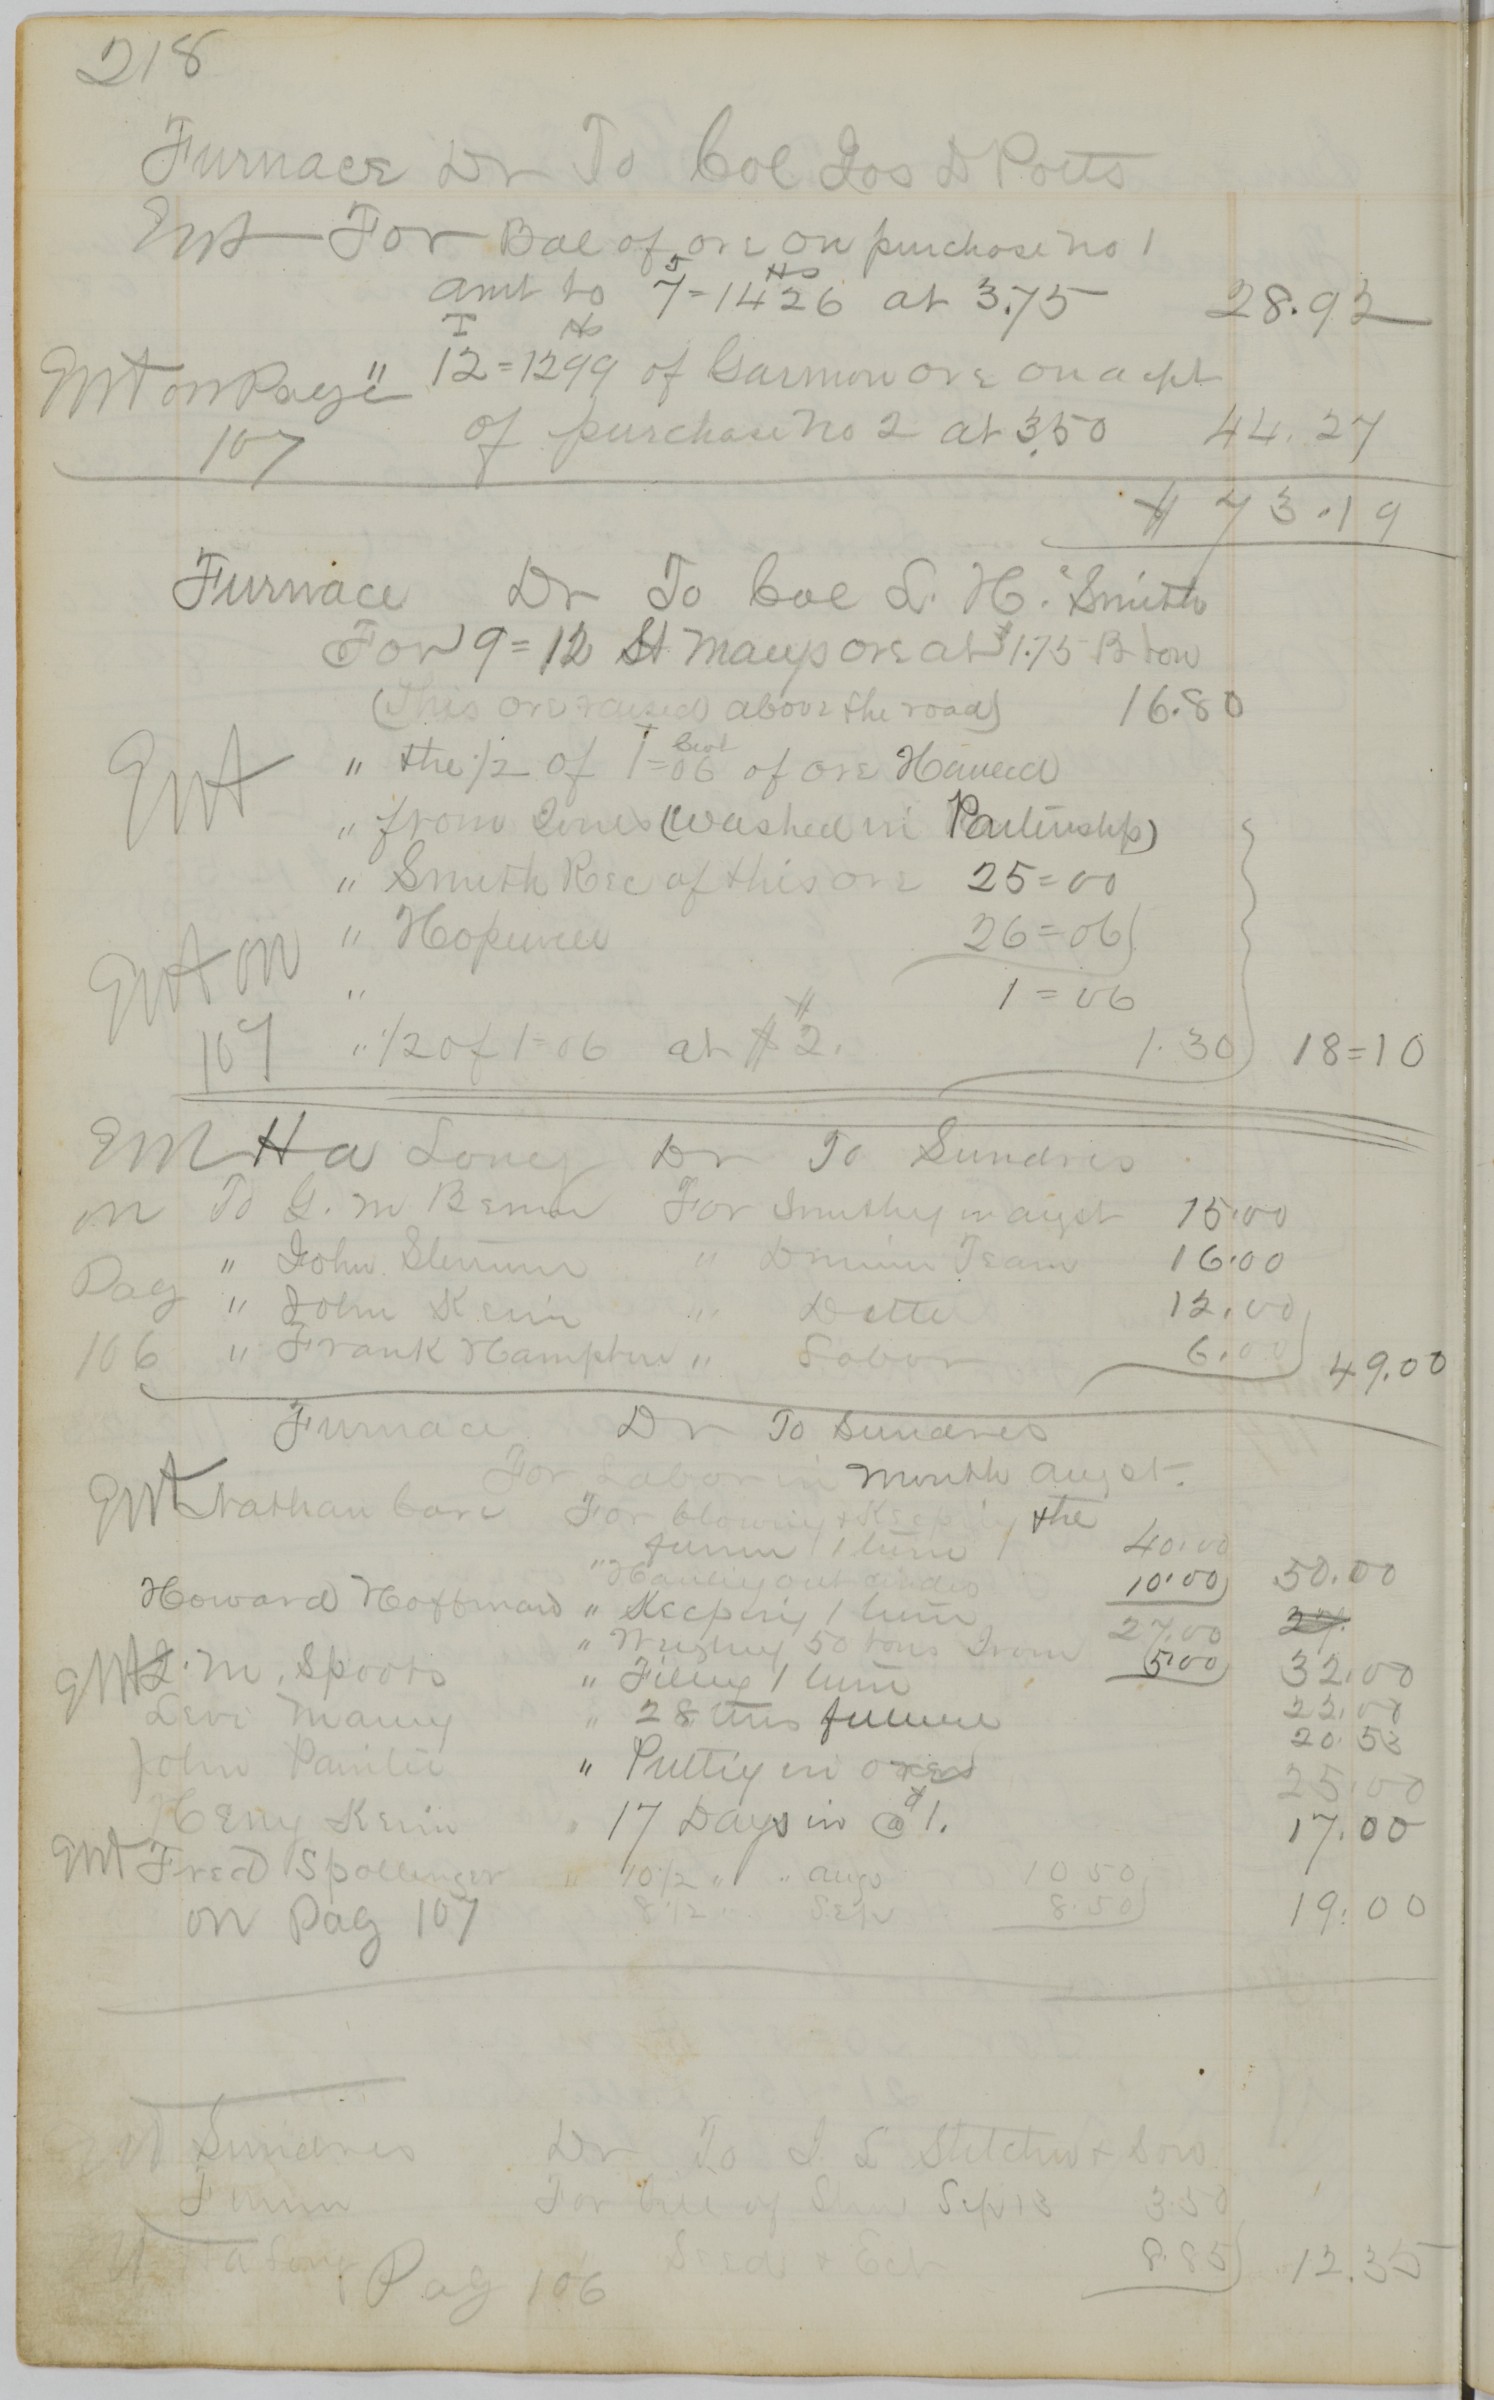 218
Furnace Dr To Col Jos D Potts
Ent For Bal of ore on purchase no 1
amt to 7=1426 at 3.75 28.92
Ent on Page " 12=1299 of Garmon ore on acpt
107 of purchase no 2 at 3.50 44.27
$ 73.19
Furnace Dr To Col L. H. Smith
For 9=12 St Marys ore at $1.75 P ton
(This ore raised above the road) 16.80
Ent " the 1/2 of 1=06 of ore Hauled
" from Lones (washed in Partinship)
" Smith Rec of this ore 25=00
Ent on " Hopewell 26=06
" 1=06
107 " 1/2 of 1=06 at $2. 1.30 18=10
Ent Ha Long Dr To Sundres
on To G. M For Smithy in augst 15.00
Pag " John " Team 16.00
" John Kerin " Ditto 12.00
106 " Frank Hampton " Labor 6.00 49.00
Furnace Dr To Sundres
For Labor in month augst.
Ent Nathan Core For blowing & Keeping the
1 turn 40.00
" Hauling out cinder 10.00 50.00
Howard Hoffman " Keeping 1 turn 27.00
" Weighing 50 tons Iron 5.00 32.00
Ent J. M. Spoots " Filling 1 turn 22.00
Levi Maury " 28 turns 20.53
John " Putting in ore 25.00
Henry Kerin " 17 Days in @ $1. 17.00
Ent Fred Spollinger " 10 1/2 " " augs 10 50
on Pag 107 8 1/2 " Sep 8.50 19.00
Ent Sundres Dr To J S & Son
For bill of Sep 13 3.50
Ha Long Seed & Ect 8.85 12.35
Pag 106